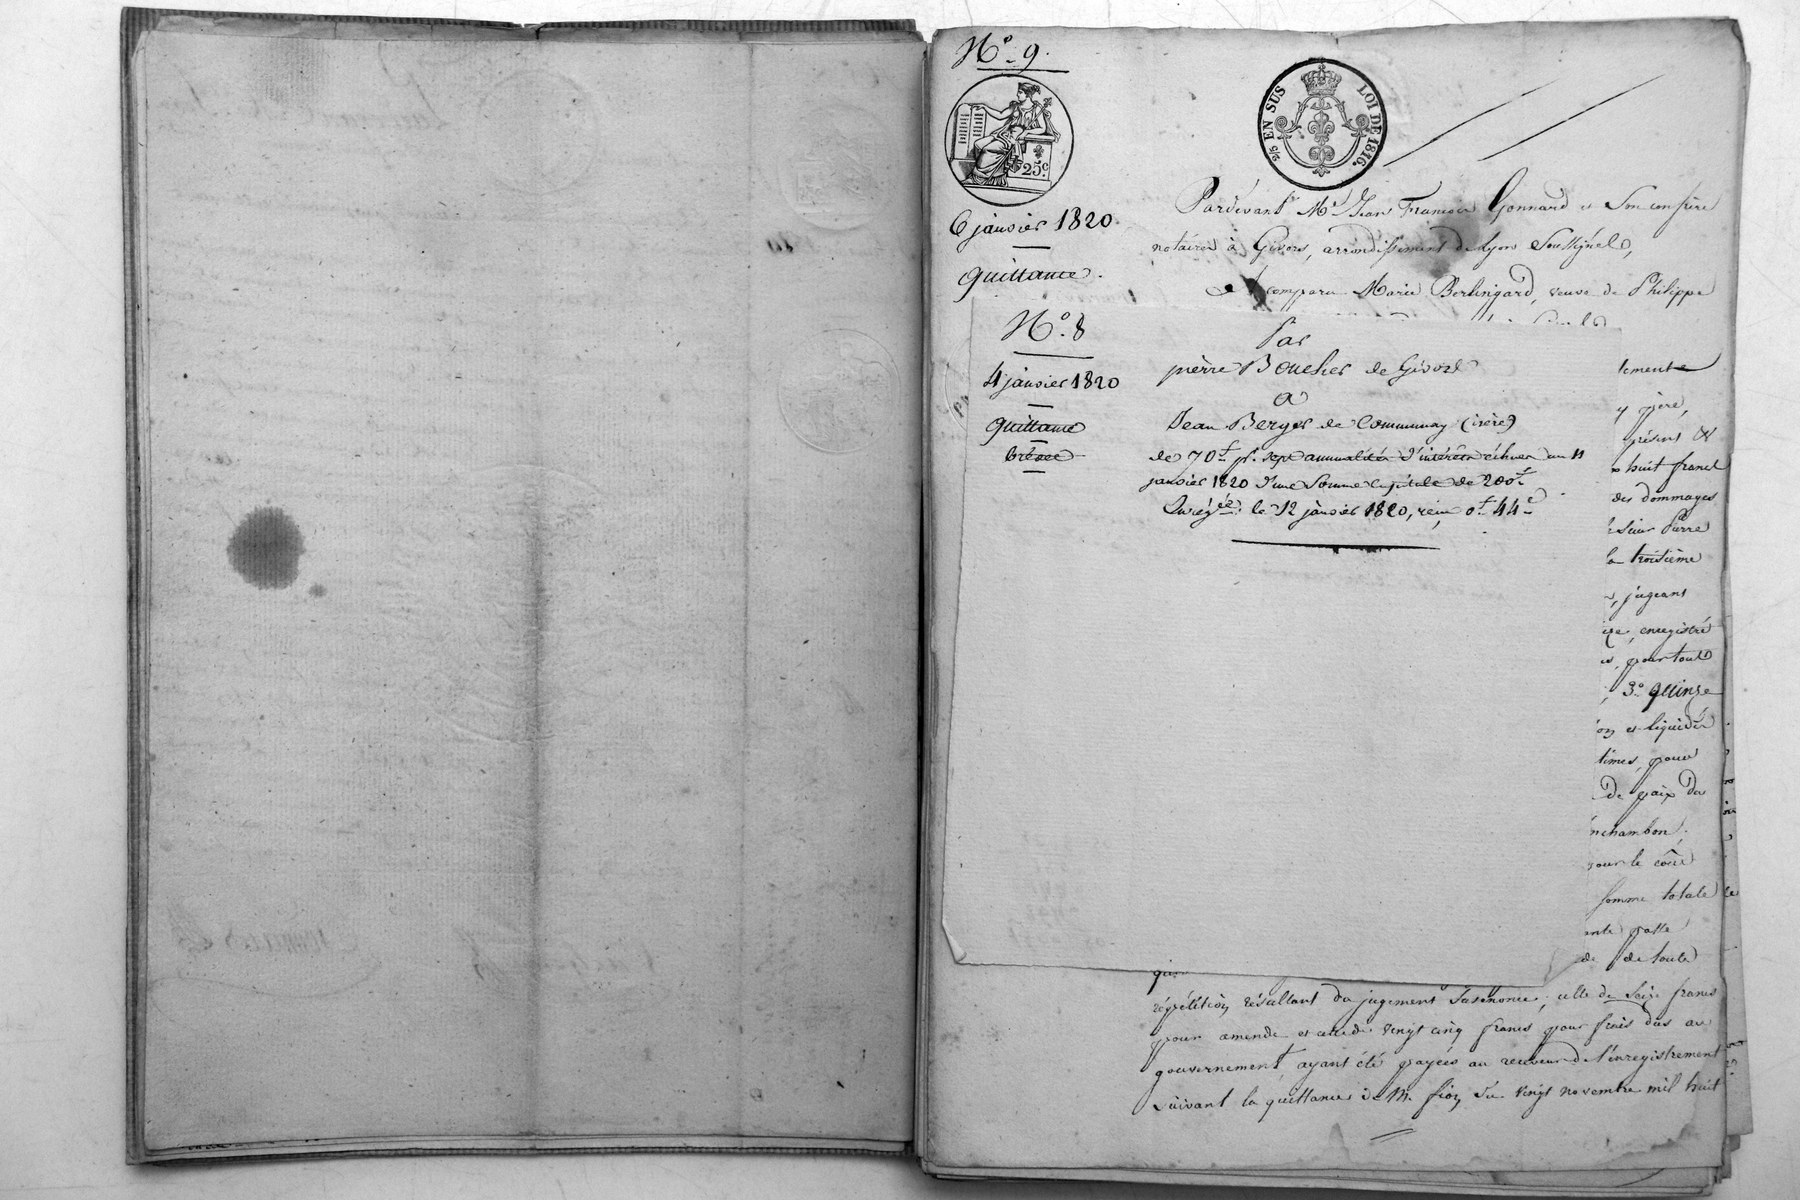 N.º 9.
25.c
2/5 EN SUS LOI DE 1816.
6 janvier 1820
quittance.
Pardevant Me Jean François Gonnard et Son confrère
notaires à Givors, arrondissement de Lyon Soussignés,
a comparu Marie Berlingard, veuve de Philippe
N.º 8
4 janvier 1820
quittance
brévée
Par
pièrre Boucher de Givors
à
Jean Berger de Communay (isère)
de 70f pr. sept annualités d'intérêts échues au 11
janvier 1820 d'une Somme capitale de 200f
Enrégée. le 12 janvier 1820, reçu 0f 44c
lement
y père,
présent et
huit francs
des dommages
Sieur Pierre
la troisième
jugeant
enregistré
pour tout
3.º quinze
et liquidés
times, pour
de paix du
nchambon,
pour le coût
somme totale
ente passé
de de toute
répétition résultant du jugement Susénoncé, celle de Seize francs
pour amende et celle de vingt cinq francs pour frais dus au
gouvernement, ayant été payées au receveur de l'enregistrement
Suivant la quittance de M. fion du vingt novembre mil huit